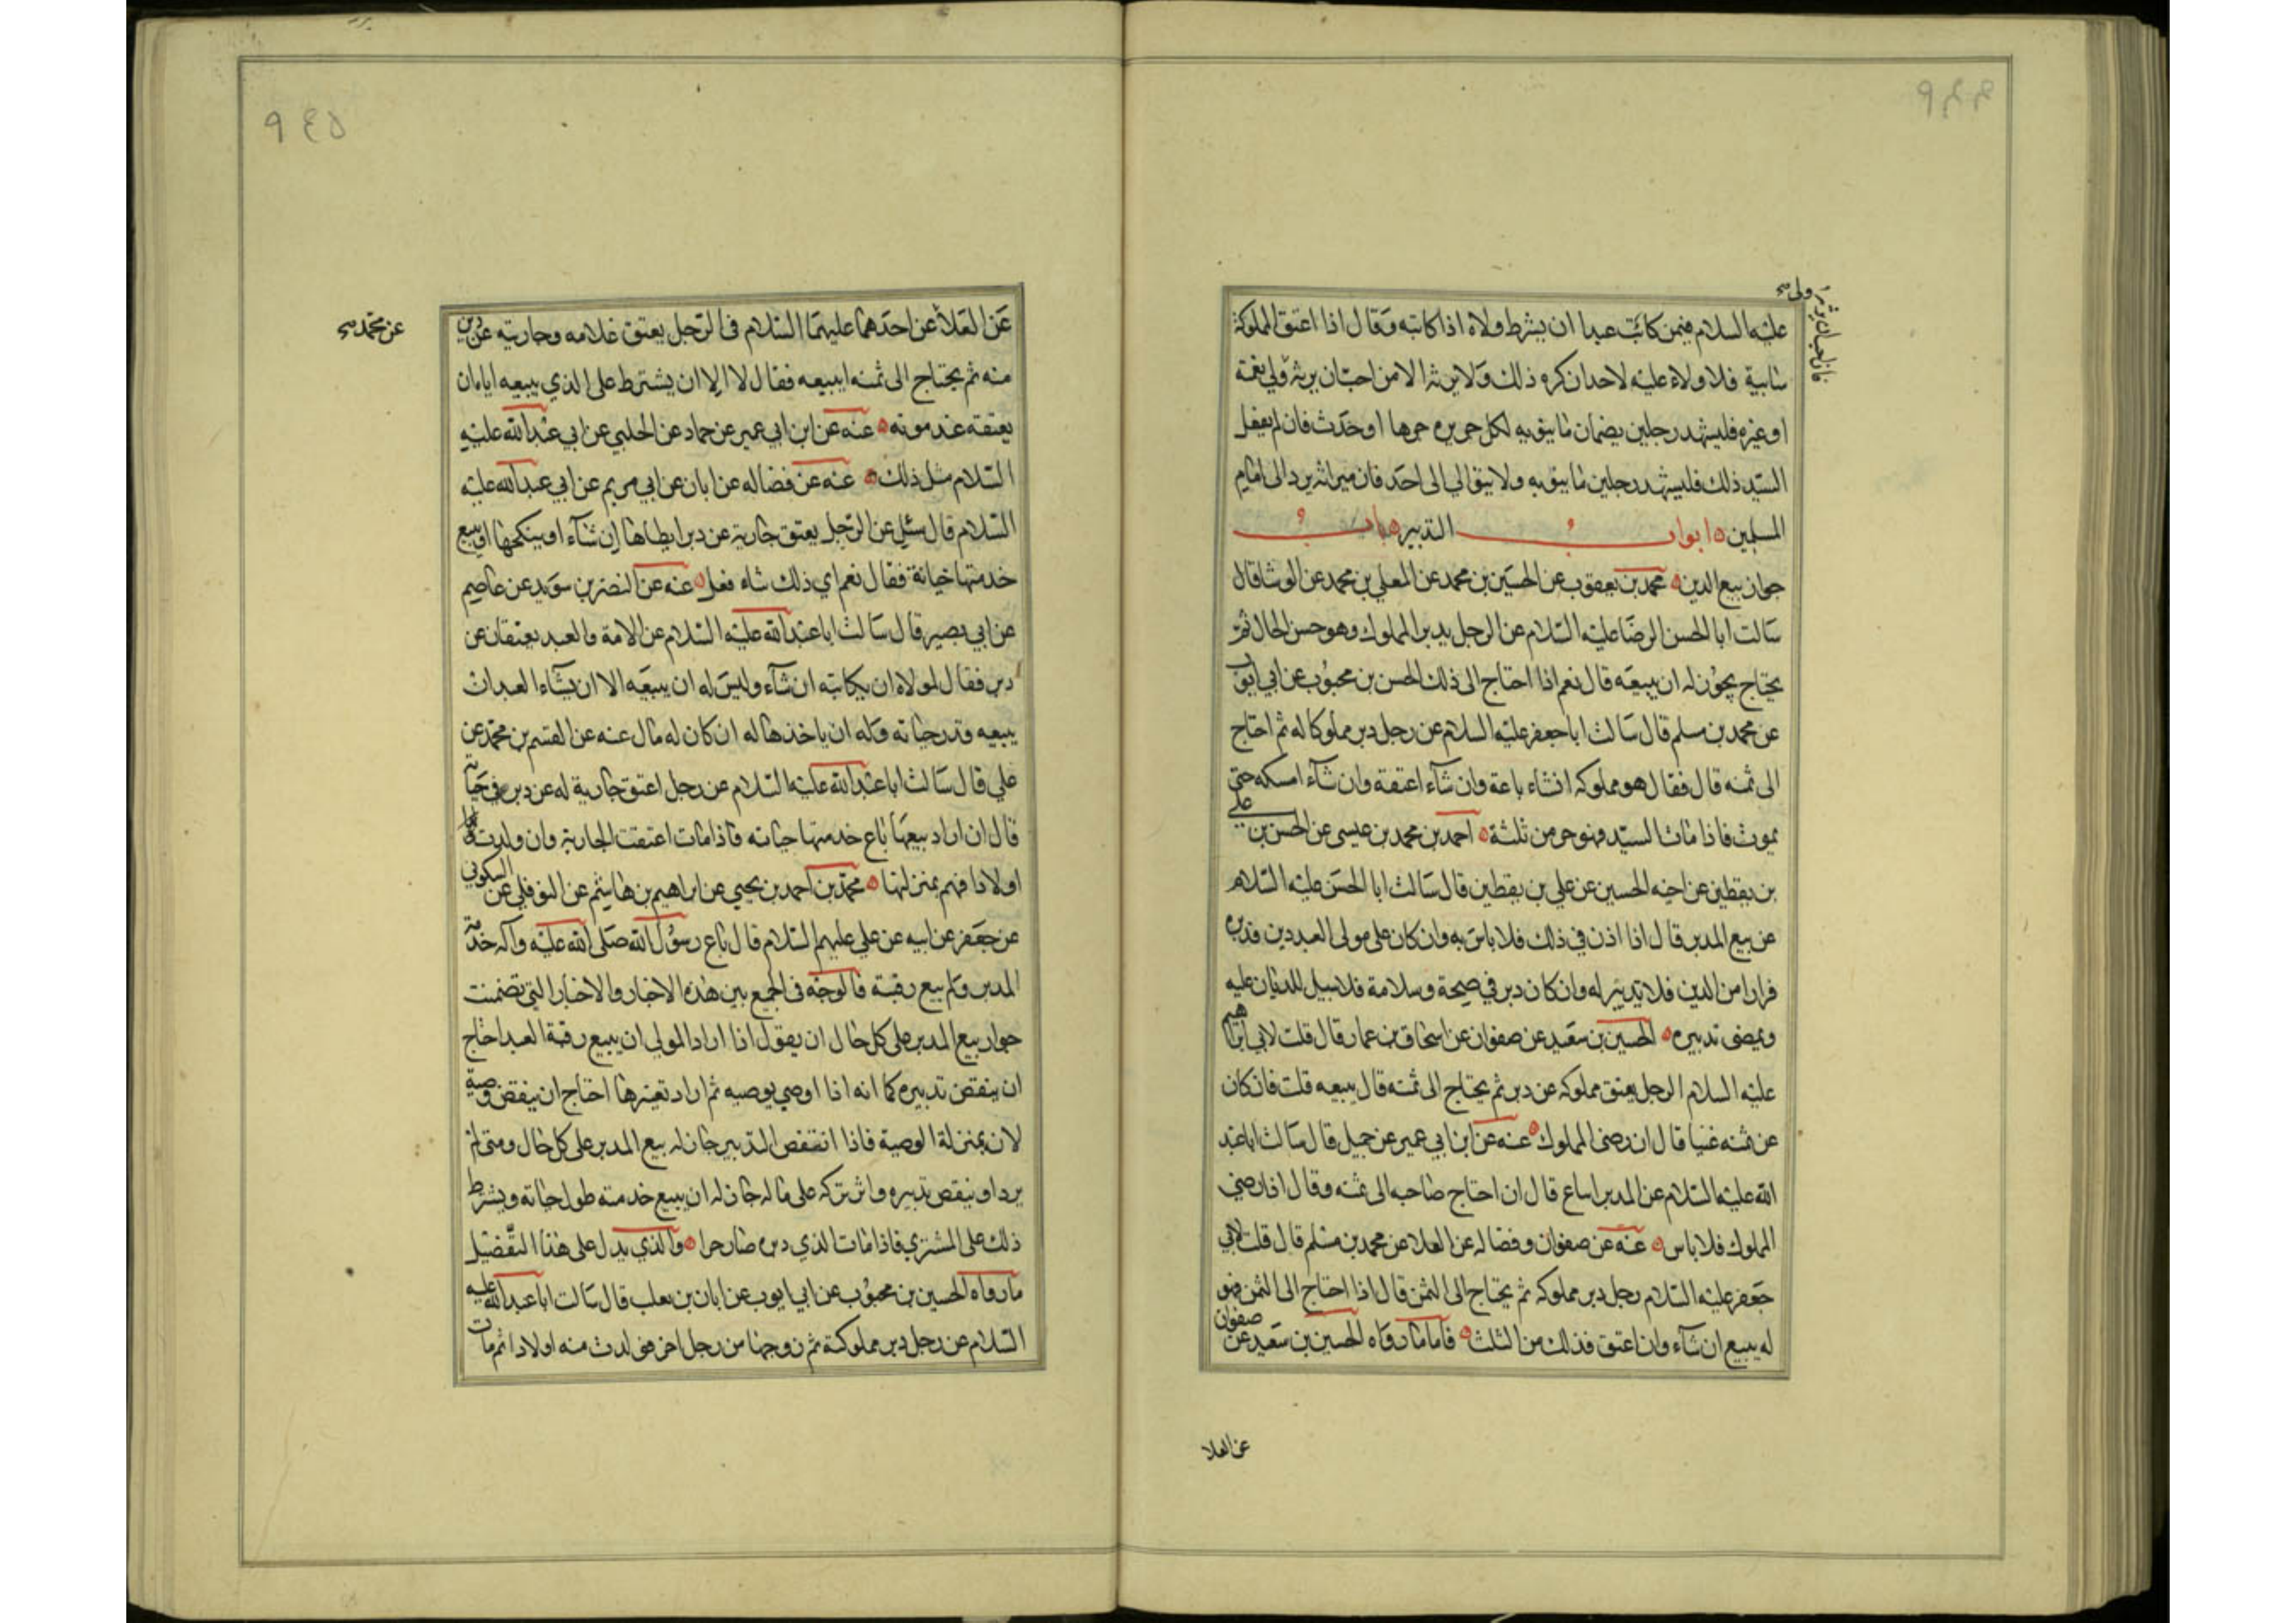 ٩٤٤
ولي
فان احب ان يرثه
عليه السلام فيمن كاتب عبدا ان يشترط ولاه اذا كاتبه وقال اذا اعتق المملوكة
سايبة فلا ولاء عليه لاحد ان كره ذلك ولا يرثه الا من احب ان يرثه ولي نعمة
او غيره فليشهد رجلين بضمان ما ينوبه لكل جريره جرها او حدث فان لم يفعل
السيد ذلك فليشهد رجلين ما ينوبه ولا يتوالي الى احد فان ميراثه يرد الى امام
المسلمين ابواب التدبير باب
جواز بيع الدين محمد بن يعقوب عن الحسين بن محمد عن المعلي بن محمد عن الوشا قال
سالت ابا الحسن الرضا عليه السلام عن الرجل يدبر المملوك وهو حسن الحال ثم
يحتاج يجوز له ان يبيعه قال نعم اذا احتاج الى ذلك الحسن بن محبوب عن ابي ايوب
عن محمد بن مسلم قال سالت ابا جعفر عليه السلام عن رجل دبر مملوكا له ثم احتاج
الى ثمنه قال فقال هو مملوكه انشاء باعة وان شآء اعتقة وان شآء امسكه حتى
يموت فاذا مات السيد فهو حر من ثلثة احمد بن محمد بن عيسى عن الحسن بن علي
بن يقطين عن اخيه الحسين عن علي بن يقطين قال سالت ابا الحسن عليه السلام
عن بيع المدبر قال اذا اذن في ذلك فلا باس به وان كان على مولى العبد دين فدبره
فرارا من الدين فلا تدبير له وان كان دبر في صحة وسلامة فلا سبيل للديان عليه
ويمضى تدبيره الحسين بن سعيد عن صفوان عن اسحاق بن عمار قال قلت لابي ابراهيم
عليه السلام الرجل يعتق مملوكه عن دبر ثم يحتاج الى ثمنه قال يبيعه قلت فان كان
عن ثمنه غنيا قال ان رضى المملوك عنه عن ابن ابي عمير عن جميل قال سالت ابا عبد
الله عليه السلام عن المدبر ايباع قال ان احتاج صاحبه الى ثمنه وقال اذا رضي
المملوك فلا باس عنه عن صفوان وفضاله عن العلا عن محمد بن مسلم قال قلت لابي
جعفر عليه السلام رجل دبر مملوكه ثم يحتاج الى الثمن قال اذا احتاج الى الثمن فهو
له يبيع ان شآء وان اعتق فذلك من الثلث فاما ما رواه الحسين بن سعيد عن صفوان
عن العلا
٩٤٥
عن محمد
عن العلا عن احدهما عليهما السلام في الرجل يعتق غلامه وجاريته عن دبر
منه ثم يحتاج الى ثمنه ايبيعه فقال لا الا ان يشترط على الذي يبيعه اياه ان
يعتقه عند موته عنه عن ابن ابي عمير عن حماد عن الحلبي عن ابي عبد الله عليه
السلام مثل ذلك عنه عن فضاله عن ابان عن ابي مريم عن ابي عبد الله عليه
السلام قال سئل عن الرجل يعتق جارية عن دبر ايطاها ان شآء او ينكحها او يبيع
خدمتها حياته فقال نعم اي ذلك شاء فعل عنه عن النضر بن سويد عن عاصم
عن ابي بصير قال سالت ابا عبد الله عليه السلام عن الامة والعبد يعتقان عن
دبر فقال لمولاه ان يكاتبه ان شآء وليس له ان يبيعه الا ان يشآء العبد ان
يبيعه قدر حياته وله ان ياخذ ماله ان كان له مال عنه عن القسم بن محمد عن
علي قال سالت ابا عبد الله عليه السلام عن رجل اعتق جارية له عن دبر في حياته
قال ان اراد بيعها باع خدمتها حياته فاذا مات اعتقت الجارية وان ولدت
اولادا فهم بمنزلتها محمد بن احمد بن يحيي عن ابراهيم بن هاشم عن النوفلي عن السكوني
عن جعفر عن ابيه عن علي عليهم السلام قال باع رسول الله صلى الله عليه وآله خدمة
المدبر ولم يبيع رقبة فالوجه في الجمع بين هذه الاخبار والاخبار التي تضمنت
جواز بيع المدبر على كل حال ان يقول اذا اراد المولي ان يبيع رقبة العبد احتاج
ان ينقض تدبيره كما انه اذا اوصي بوصيه ثم اراد تغيرها احتاج ان ينقض وصيته
لان بمنزلة الوصية فاذا انتقض التدبير جاز له بيع المدبر على كل حال ومتى لم
يرد او ينقض تدبيره واثر تركه على ماله جاز له ان يبيع خدمته طول حياته ويشرط
ذلك على المشتري فاذا مات الذي دبره صار حرا والذي يدل على هذا التفضيل
مارواه الحسين بن محبوب عن ابي ايوب عن ابان بن تغلب قال سالت ابا عبد الله عليه
السلام عن رجل دبر مملوكة ثم زوجها من رجل اخر فولدت منه اولادا ثم مات